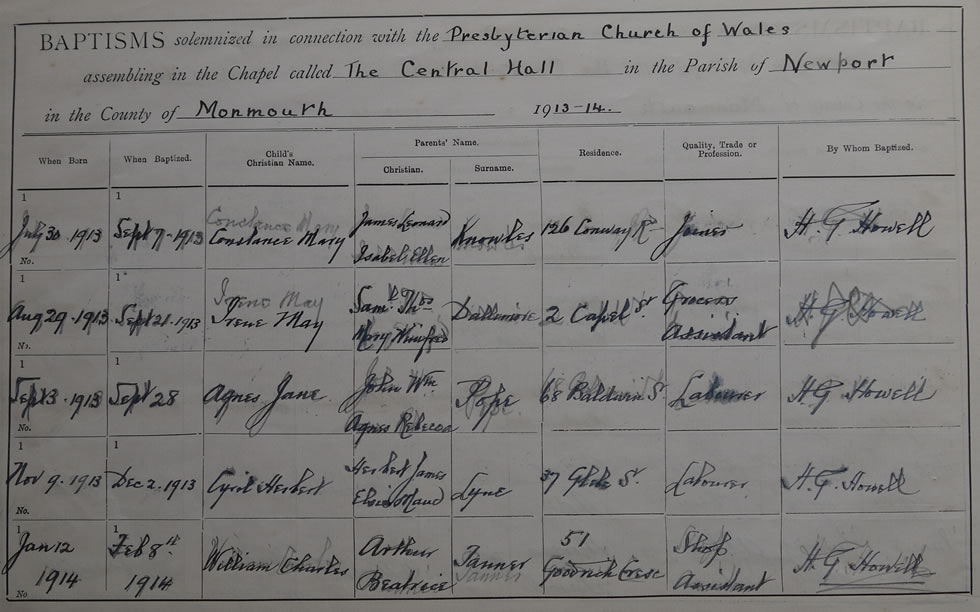 BAPTISMS solemnized in connection with the Presbyterian Church of Wales
assembling in the Chapel called The Central Hall in the Parish of Newport
in the County of Monmouth 1913-14.
When Born When Baptized. Child's Christian Name. Parents' Name. Christian. Surname. Residence. Quality, Trade or Profession. By Whom Baptized.
1 1
Constance Mary James Leonard
July 30 1913 Sept 7-1913 Constance Mary Knowles 126 Conway Rd Joiner H. G. Howell
No. Isabel Ellen
1 1
Irene May Saml Thos Grocers
Aug 29.1913 Sept 21.1913 Irene May Dallimore 2 Capel St H. G. Howell
No. Mary Winifred Assistant
1 1
John Wm
Sept 3.1913 Sept 28 Agnes Jane Pope 68 Baldwin St Labourer H G Howell
No. Agnes Rebecca
1 1
Herbert James
Nov 9.1913 Dec 2.1913 Cyril Herbert Lyne 37 St. Labourer H. G. Howell
No. Elsie Maud
1 1
Jan 12 Feb 8th Arthur 51 Shop
William Charles Tanner H. G. Howell
Tanner
1914 1914 Beatrice Goodrich Cresc Assistant
No